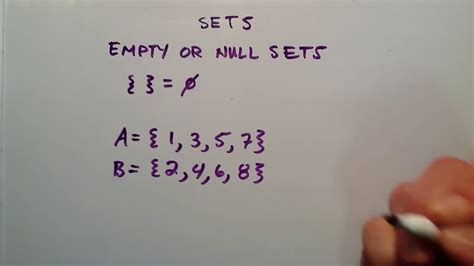 SETS
EMPTY OR NULL SETS
{ } = ∅
A = { 1, 3, 5, 7}
B = {2, 4, 6, 8}